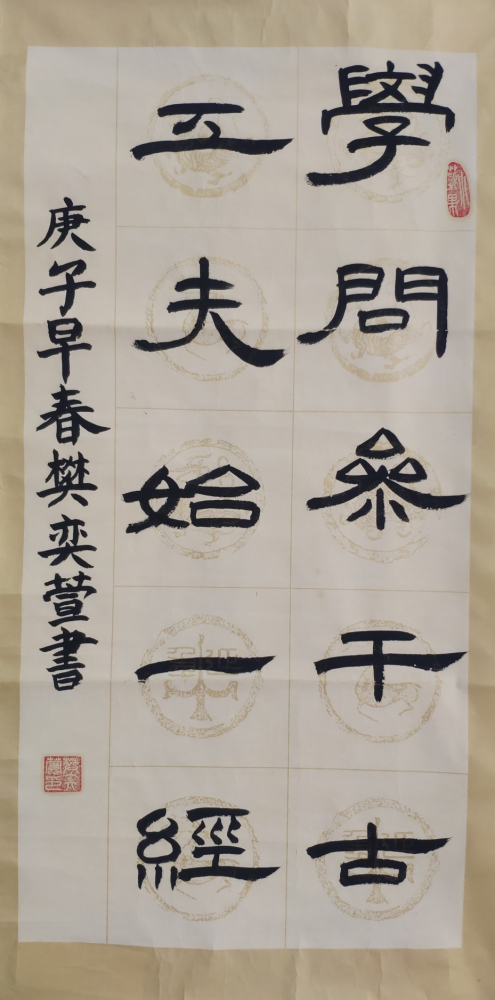 學問參千古
工夫始一經
庚子早春樊奕萱書